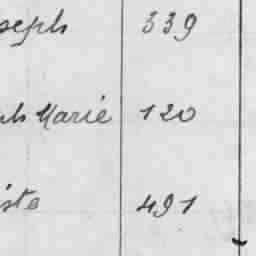 seph 339
ph Marie 120
iste 491